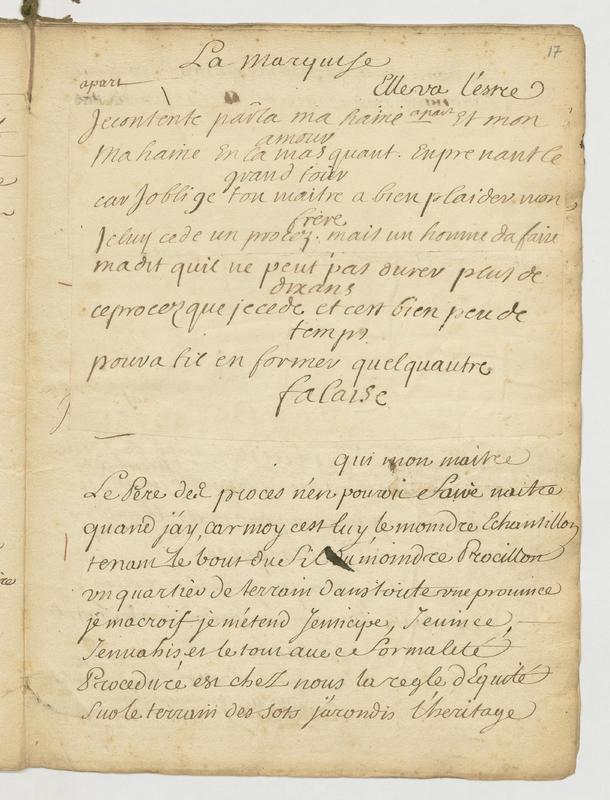 17
La marquise
apart
Elleva l'estre
Jecontente par la ma haine apart Et mon
amour
Ma haine En la masquant. Enprenant le
grand tour
car Joblige ton maitre a bien plaider mon
frere
Jeluy cede un procez. mais un homme dafaire
madit quil ne peut pas durer plus de
dixans
ceprocez que jecede et cest bien peu de
temps
pourra til en former quelquautre
falaise
qui mon maitre
Le Pere des proces n'en pouroir faire naitre
quand j'ay, car moy cest luy le moindre Echantillon
tenant Le bout du fil du moindre Procillon
vn quartier de terrain dans toute vne prouince
je macrois je m'etend Jenticipe, Jeuince,
Jenuahis et le tout auec formalité
Proceduré est chez nous la regle d'Equité
Sur le terrain des sots j'arondis l'heritage